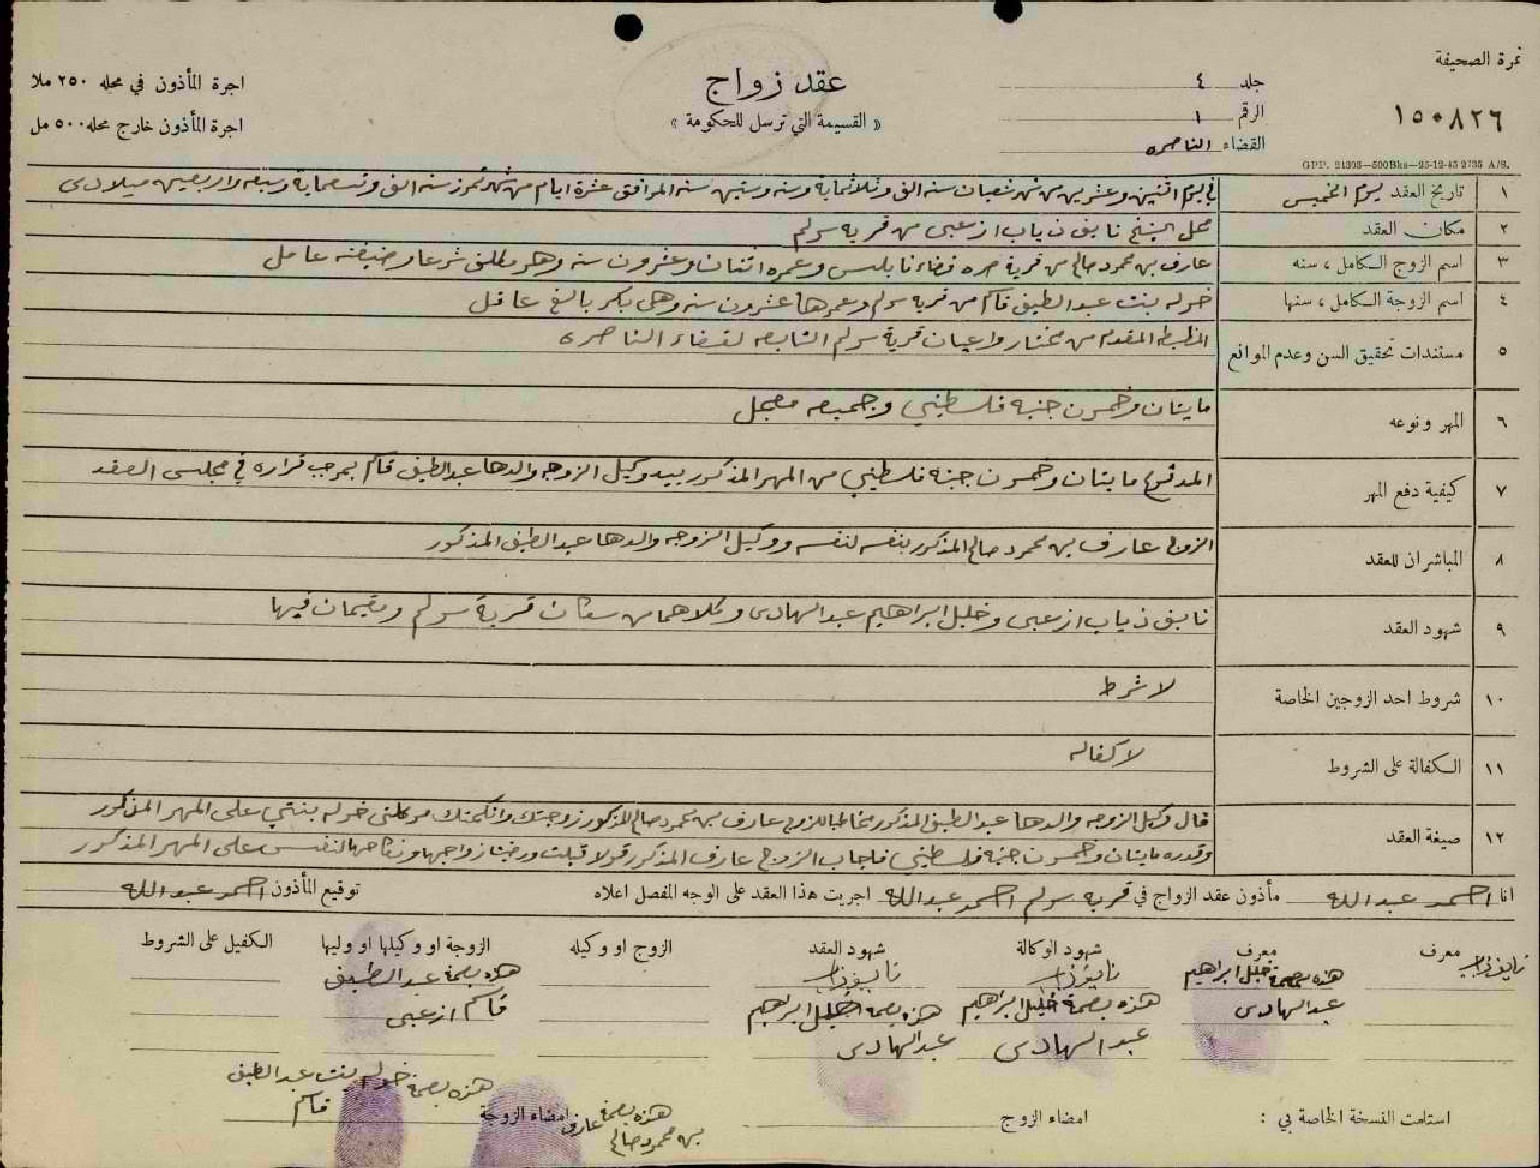 نمرة الصحيفة
١٥٠٨٢٦
جلد ٤
الرقم ١
القضاء الناصره
عقد زواج
« القسيمة التي ترسل للحكومة »
اجرة المأذون في محله ٢٥٠ ملا
اجرة المأذون خارج محله ٥٠٠ مل
GPP. 21303—500Bks—25-12-45 2735 A/S.
١ تاريخ العقد يوم الخميس في يوم اثنين وعشرين من شهر شعبان سنه الف وثلاثماية وسته وستين سنه الموافق عشرة ايام من شهر تموز سنه الف وتسعماية وسبعه واربعين ميلادى
٢ مكان العقد محل الشيخ نايف ذياب ازعبى من قريه سولم
٣ اسم الزوج الكامل ، سنه عارف بن محمود صالح من قرية صره قضاء نابلس وعمره اثنان وعشرون سنه وهو مطلق شرعا وضيفته عامل
٤ اسم الزوجة الكامل ، سنها خوله بنت عبد الطيف قاسم من قريه سولم وعمرها عشرون سنه وهى بكر بالغ عاقل
٥ مستندات تحقيق السن وعدم الموانع المظبطه المقدمه من مختار واعيان قرية سولم التابعه لقضاء الناصره
٦ المهر ونوعه مايتان وخمسون جنيه فلسطيني وجميعه معجل
٧ كيفية دفع المهر المدفوع مايتان وخمسون جنيه فلسطيني من المهر المذكور بيد وكيل الزوجه والدها عبد الطيف قاسم بموجب قراره في مجلس العقد
٨ المباشران للعقد الزوج عارف بن محمود صالح المذكور بنفسه لنفسه ووكيل الزوجه والدها عبد الطيف المذكور
٩ شهود العقد نايف ذياب ازعبى وخليل ابراهيم عبد الهادى وكلاهما من سكان قرية سولم ومقيمان فيها
١٠ شروط احد الزوجين الخاصة لا شرط
١١ الكفالة على الشروط لا كفاله
١٢ صيغة العقد قال وكيل الزوجه والدها عبد الطيف المذكور مخاطبا للزوج عارف بن محمود صالح المذكور زوجتك وانكحتك موكلتى خوله بنتي على المهر المذكور
وقدره مايتان وخمسون جنيه فلسطيني فاجاب الزوج عارف المذكور قولا قبلت ورضيت زواجها ونكاحها لنفسى على المهر المذكور
انا احمد عبد الله مأذون عقد الزواج في قرية سولم احمد عبد الله اجريت هذا العقد على الوجه المفصل اعلاه توقيع المأذون احمد عبد الله
معرف معرف شهود الوكالة شهود العقد الزوج او وكيله الزوجة او وكيلها او وليها الكفيل على الشروط
نايف ذياب هذه بصمة خليل ابراهيم نايف ذياب نايف ذياب هذه بصمة عبد الطيف
عبد الهادى هذه بصمة خليل ابراهيم هذه بصمة خليل ابراهيم قاسم ازعبى
عبد الهادى عبد الهادى
هذه بصمة خوله بنت عبد الطيف
قاسم
استلمت النسخة الخاصة بي : امضاء الزوج هذه بصمة عارف امضاء الزوجة
بن محمود صالح